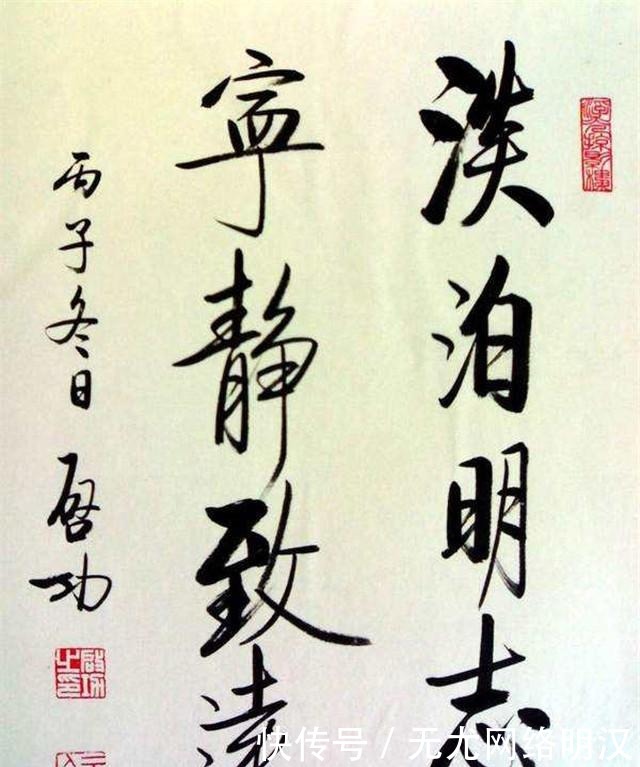 淡泊明志
宁静致远
丙子冬日
启功
启功之印
快传号 / 无尤网络明汉